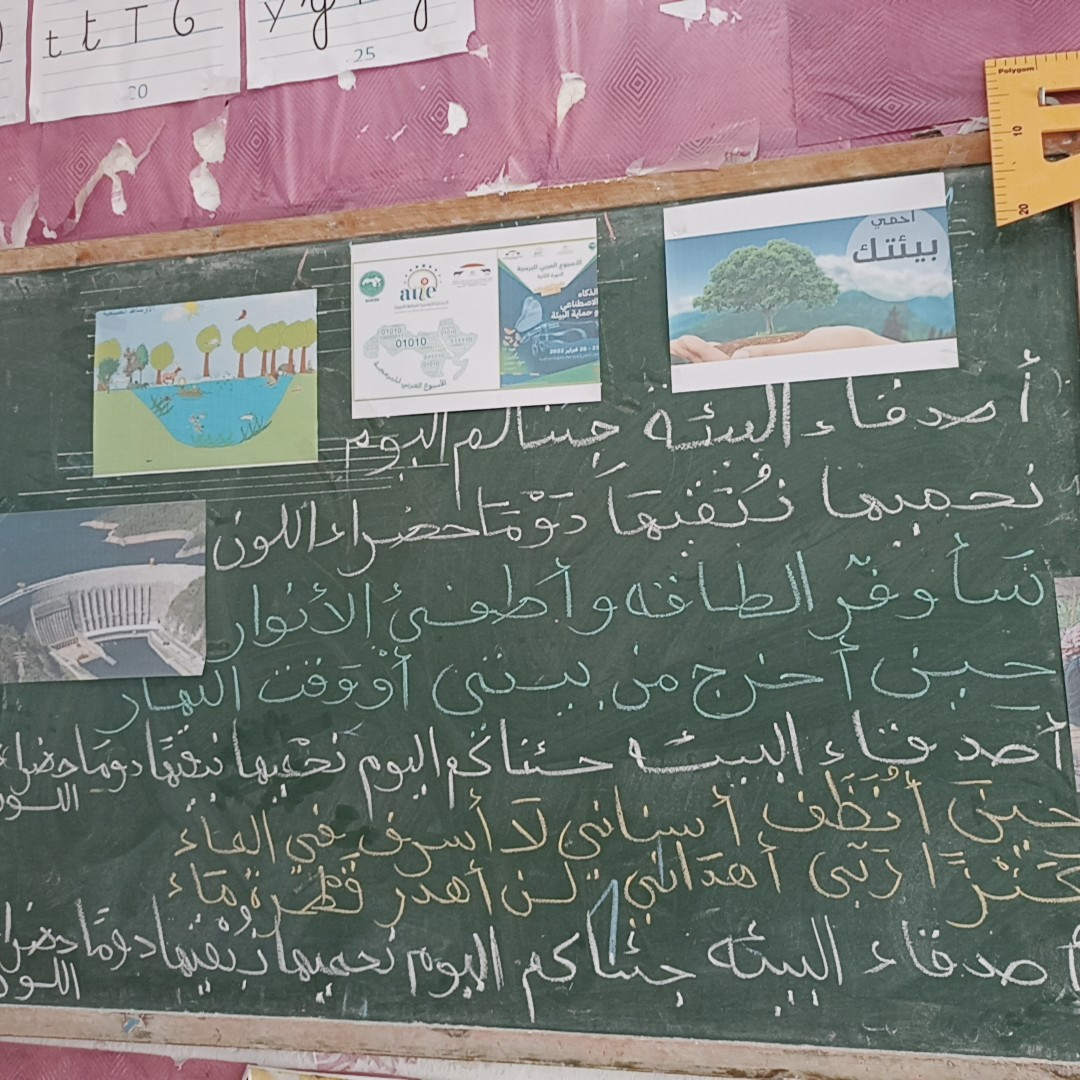 t t T G
20
y y
25
Polygom
10
20
احمي
بيئتك
الأسبوع العربي للبرمجة
aue
الذكاء
الاصطناعي
و حماية البيئة
01010
01010
الأسبوع العربي للبرمجة
أصدقاء البيئة جئناكم اليوم
نحميها نُنَقيهَا دَوْمًا خضراء اللون
سَأوفّر الطاقة وأطفئُ الأنوار
حين أخرج من بيتي أوْ وَقت النهار
أصدقاء البيئة جئناكم اليوم نَحْميها ننقيهَا دومًا خضراء
اللون
حينَ أُنَظِّف أسناني لَا أسرف في المَاءْ
كَنْزٌ رَبّي أهدَاني لن أهدر قَطْرةً مَاءْ
أصدقاء البيئة جئناكم اليوم نحميها نُنَقيها دومًا خضراء
اللون